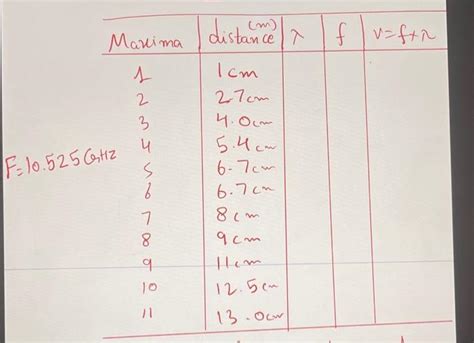 Maxima distance (m) λ f v=f×λ
1 1cm
2 2.7cm
3 4.0cm
4 5.4cm
F=10.525GHz
5 6.7cm
6 6.7cm
7 8cm
8 9cm
9 11cm
10 12.5cm
11 13.0cm